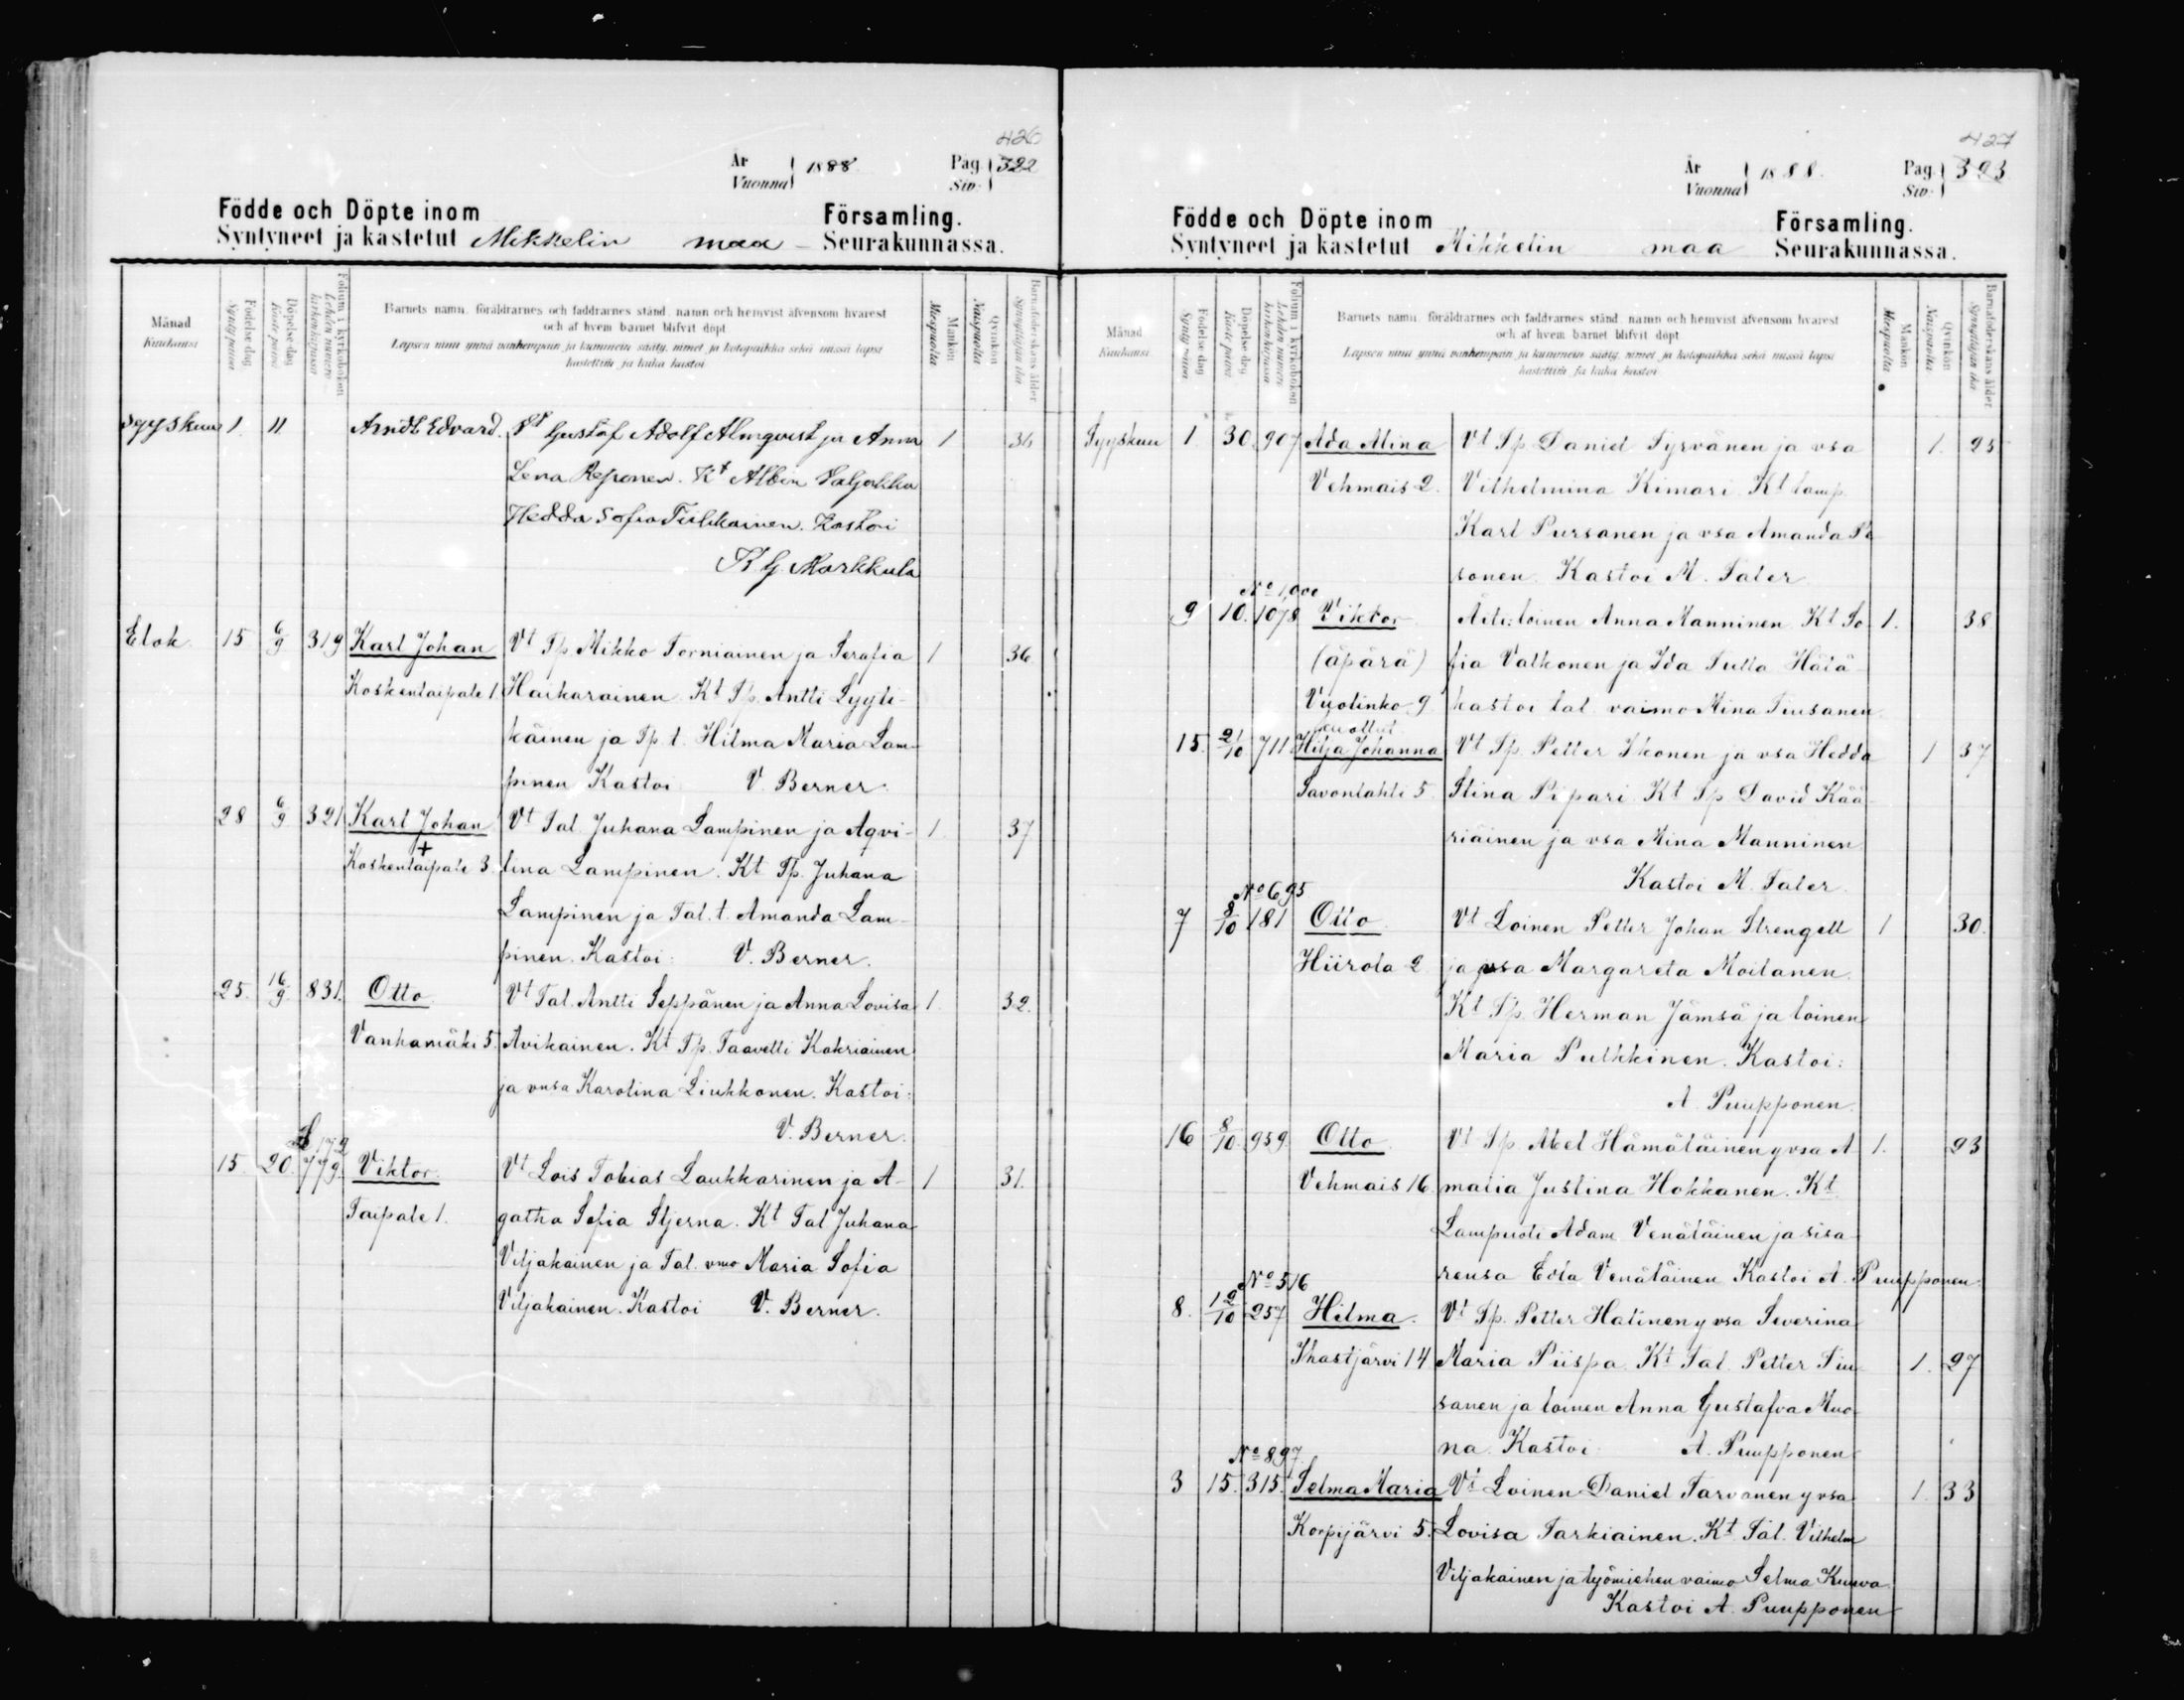 426
År 1888. Pag. 322
Vuonna Siv.
Födde och Döpte inom Församling.
Syntyneet ja kastetut Mikkelin maa- Seurakunnassa.
Månad
Kuukausi
Födelse dag
Synty päivä
Döpelse dag
Kaste päivä
Folium i kyrkoboken
Lehden numero kirkonkirjassa
Barnets namn, föräldrarnes och faddrarnes stånd, namn och hemvist äfvensom hvarest
och af hvem barnet blifvit döpt.
Lapsen nimi ynnä vanhempain ja kummein sääty, nimet ja kotopaikka sekä missä lapsi
kastettiin ja kuka kastoi
Mankön
Miespuolia
Qvinkön
Naispuolia
Barnaföderskans ålder
Synnyttäjän ikä
Syyskuu 1. 11 Arndt Edvard. Vt Gustaf Adolf Almqvist ja Anna 1 36
Lena Reponen. Kt Albin Valjakka
Hedda Sofia Tulikainen. Kastoi
K G Markkula
Elok. 15 6/9 319 Karl Johan Vt Tp. Mikko Torniainen ja Serafia 1 36
Koskentaipale 1. Haikarainen. Kt Tp. Antti Lyyti-
käinen ja Tp. t. Hilma Maria Lam-
pinen Kastoi V. Berner.
28 6/9 321 Karl Johan Vt Tal. Juhana Lampinen ja Aqvi- 1. 37
+
Koskentaipale 3. lina Lampinen. Kt Tp. Juhana
Lampinen ja Tal. t. Amanda Lam-
pinen. Kastoi: V. Berner.
25. 16/9 831. Otto Vt Tal. Antti Seppänen ja Anna Lovisa 1. 32.
Vanhamäki 5. Avikainen. Kt Tp. Taavetti Kakriainen
ja vnsa Karolina Liukkonen. Kastoi:
V. Berner.
172
15. 20. 779. Viktor. Vt Lois Tobias Laukkarinen ja A- 1 31.
Taipale 1. gatha Sofia Stjerna. Kt Tal Juhana
Viljakainen ja Tal. vmo Maria Sofia
Viljakainen. Kastoi V. Berner.
427
År 1888. Pag. 323
Vuonna Siv.
Födde och Döpte inom Församling.
Syntyneet ja kastetut Mikkelin maa Seurakunnassa.
Månad
Kuukausi
Födelse dag
Synty päivä
Döpelse dag
Kaste päivä
Folium i kyrkoboken
Lehden numero kirkonkirjassa
Barnets namn, föräldrarnes och faddrarnes stånd, namn och hemvist äfvensom hvarest
och af hvem barnet blifvit döpt.
Lapsen nimi ynnä vanhempain ja kummein sääty, nimet ja kotopaikka sekä missä lapsi
kastettiin ja kuka kastoi
Mankön
Miespuolia
Qvinkön
Naispuolia
Barnaföderskans ålder
Synnyttäjän ikä
Syyskuu 1. 30. 907 Ada Alina Vt Tp. Daniel Tyrvänen ja vsa 1. 25
Vehmais 2. Vilhelmina Kimari Kt lamp.
Karl Pursanen ja vsa Amanda Pe
sonen. Kastoi M. Taler
No 1,000
9 10. 1078 Viktor Äiti: loinen Anna Manninen Kt So 1. 38
(äpärä) fia Valkonen ja Ida Tulla Hätä
Vuolinko 9 kastoi tal. vaimo Mina Tiusanen
15. 21/10 711 Hilja Johanna Vt Tp. Petter Ikonen ja vsa Hedda 1 37
Savonlahti 5. Stina Pipari. Kt Tp David Kää
riäinen ja vsa Mina Manninen
Kastoi M. Taler.
No 695
7 8/10 181 Otto Vt Loinen Petter Johan Strengell 1 30.
Hiirola 2 ja vsa Margareta Moilanen.
Kt Tp. Herman Jämsä ja loinen
Maria Pulkkinen. Kastoi:
A. Puupponen.
16 8/10. 959. Otto Vt Tp. Abel Hämäläinen y vsa A 1. 23
Vehmais 16. malia Justina Hokkanen. Kt
Lampuoti Adam Venäläinen ja sisa
rensa Edla Venäläinen Kastoi A. Puupponen.
No 516
8. 12/10 257 Hilma. Vt Tp. Petter Halinen y vsa Severina
Ihastjärvi 14 Maria Piispa. Kt Tal. Petter Tiu 1. 27
sanen ja loinen Anna Gustafva Muo
na. Kastoi: A. Puupponen
No 897.
3 15. 315. Selma Maria Vt Loinen Daniel Tarvanen y vsa 1. 33
Korpijärvi 5. Lovisa Tarkiainen. Kt Tal. Vilhelm
Viljakainen ja työmiehen vaimo Selma Kuuva.
Kastoi A. Puupponen